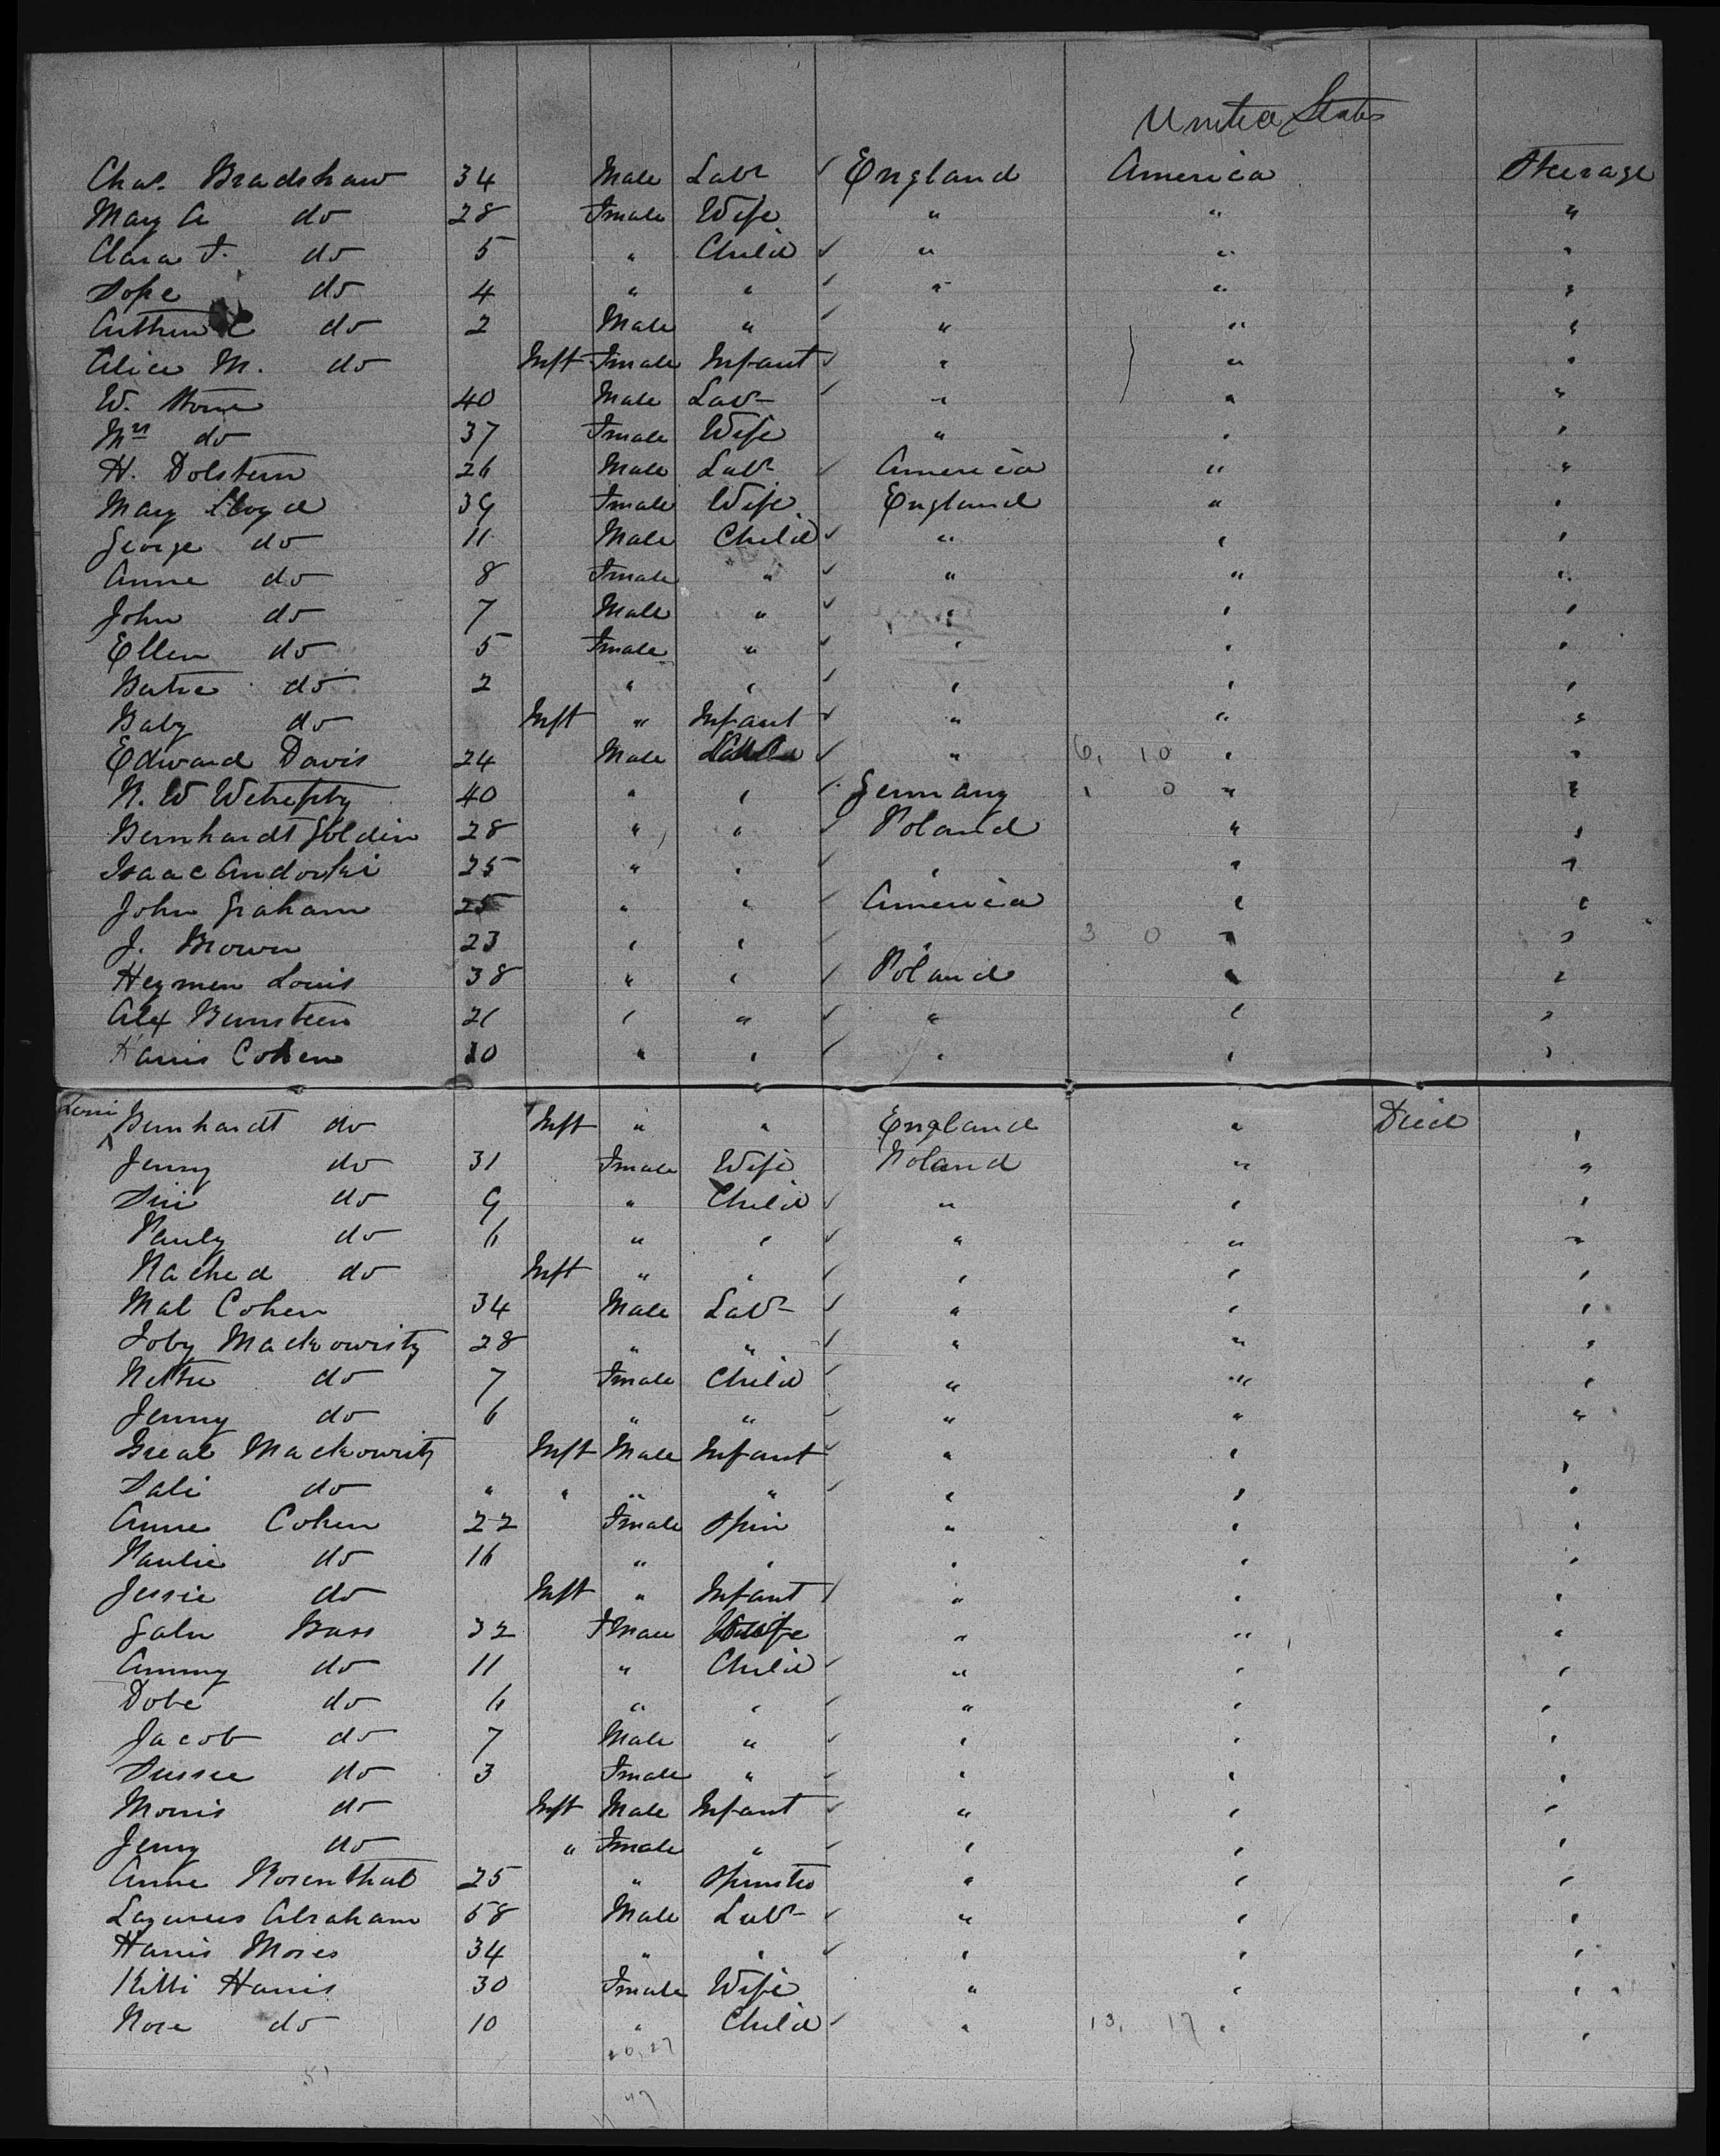 United States
Chas. Bradshaw 34 Male Labr ✓ England America Steerage
Mary A do 28 Fmale Wife " " "
Clara F. do 5 " Child ✓ " " "
Sope do 4 " " ✓ " " "
Arthur do 2 Male " ✓ " " "
Alice M. do Inft Fmale Infant ✓ " " "
W. Stone 40 Male Labr ✓ " " "
Mrs do 37 Fmale Wife " " "
H. Dolstern 26 Male Labr ✓ America " "
Mary Lloyd 39 Fmale Wife England " "
George do 11 Male Child ✓ " " "
Anne do 8 Fmale " ✓ " " "
John do 7 Male " ✓ " " "
Ellen do 5 Fmale " ✓ " " "
do 2 " " ✓ " " "
Baby do Inft " Infant ✓ " " "
Edward Davis 24 Male ✓ " 6, 10 " "
N. W 40 " " ✓ Germany 0 " "
Bernhardt Goldin 28 " " ✓ Poland " "
Isaac Andorski 25 " " ✓ " " "
John Graham 25 " " ✓ America " "
J. Brown 23 " " ✓ " 3 0 " "
Heymen Louis 38 " " ✓ Poland " "
Alex Bernstein 21 " " ✓ " " "
Harris Cohen " " ✓ " " "
Bernhardt do Inft " " England " Died "
Jenny do 31 Fmale Wife Poland " "
do 9 " Child ✓ " " "
Pauly do 6 " " ✓ " " "
Rached do Inft " " ✓ " " "
Mat Cohen 34 Male Labr ✓ " " "
Toby Mackowisty 28 " " ✓ " " "
Nettie do 7 Fmale Child ✓ " " "
Jenny do 6 " " ✓ " " "
Mackowitz Inft Male Infant ✓ " " "
Sali do " " " " ✓ " " "
Anne Cohen 22 Fmale Spin " " "
Paulie do 16 " " " " "
Jessie do Inft " Infant ✓ " " "
Bass 32 Fmale Wife " " "
Ammy do 11 " Child ✓ " " "
Dobe do 6 " " ✓ " " "
Jacob do 7 Male " ✓ " " "
Sussie do 3 Fmale " ✓ " " "
Morris do Inft Male Infant ✓ " " "
Jenny do " Fmale " ✓ " " "
Anne Rosenthal 25 " Spinster " " "
Lazarus Abraham 58 Male Labr ✓ " " "
Harris Moses 34 " " ✓ " " "
Kitti Harris 30 Fmale Wife " " "
Rose do 10 " Child ✓ " 13, 17 " "
51